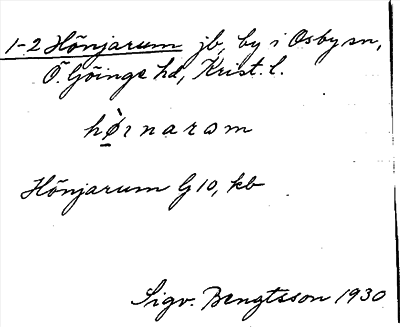 1-2 Hönjarum jb, by i Osby sn,
Ö Göinge hd, Krist. l.
hø̀ɪnarəm
Hönjarum G 10, kb
Sigv. Bengtsson 1930